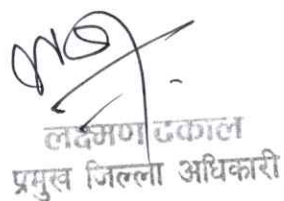 लक्ष्मण ढकाल
प्रमुख जिल्ला अधिकारी